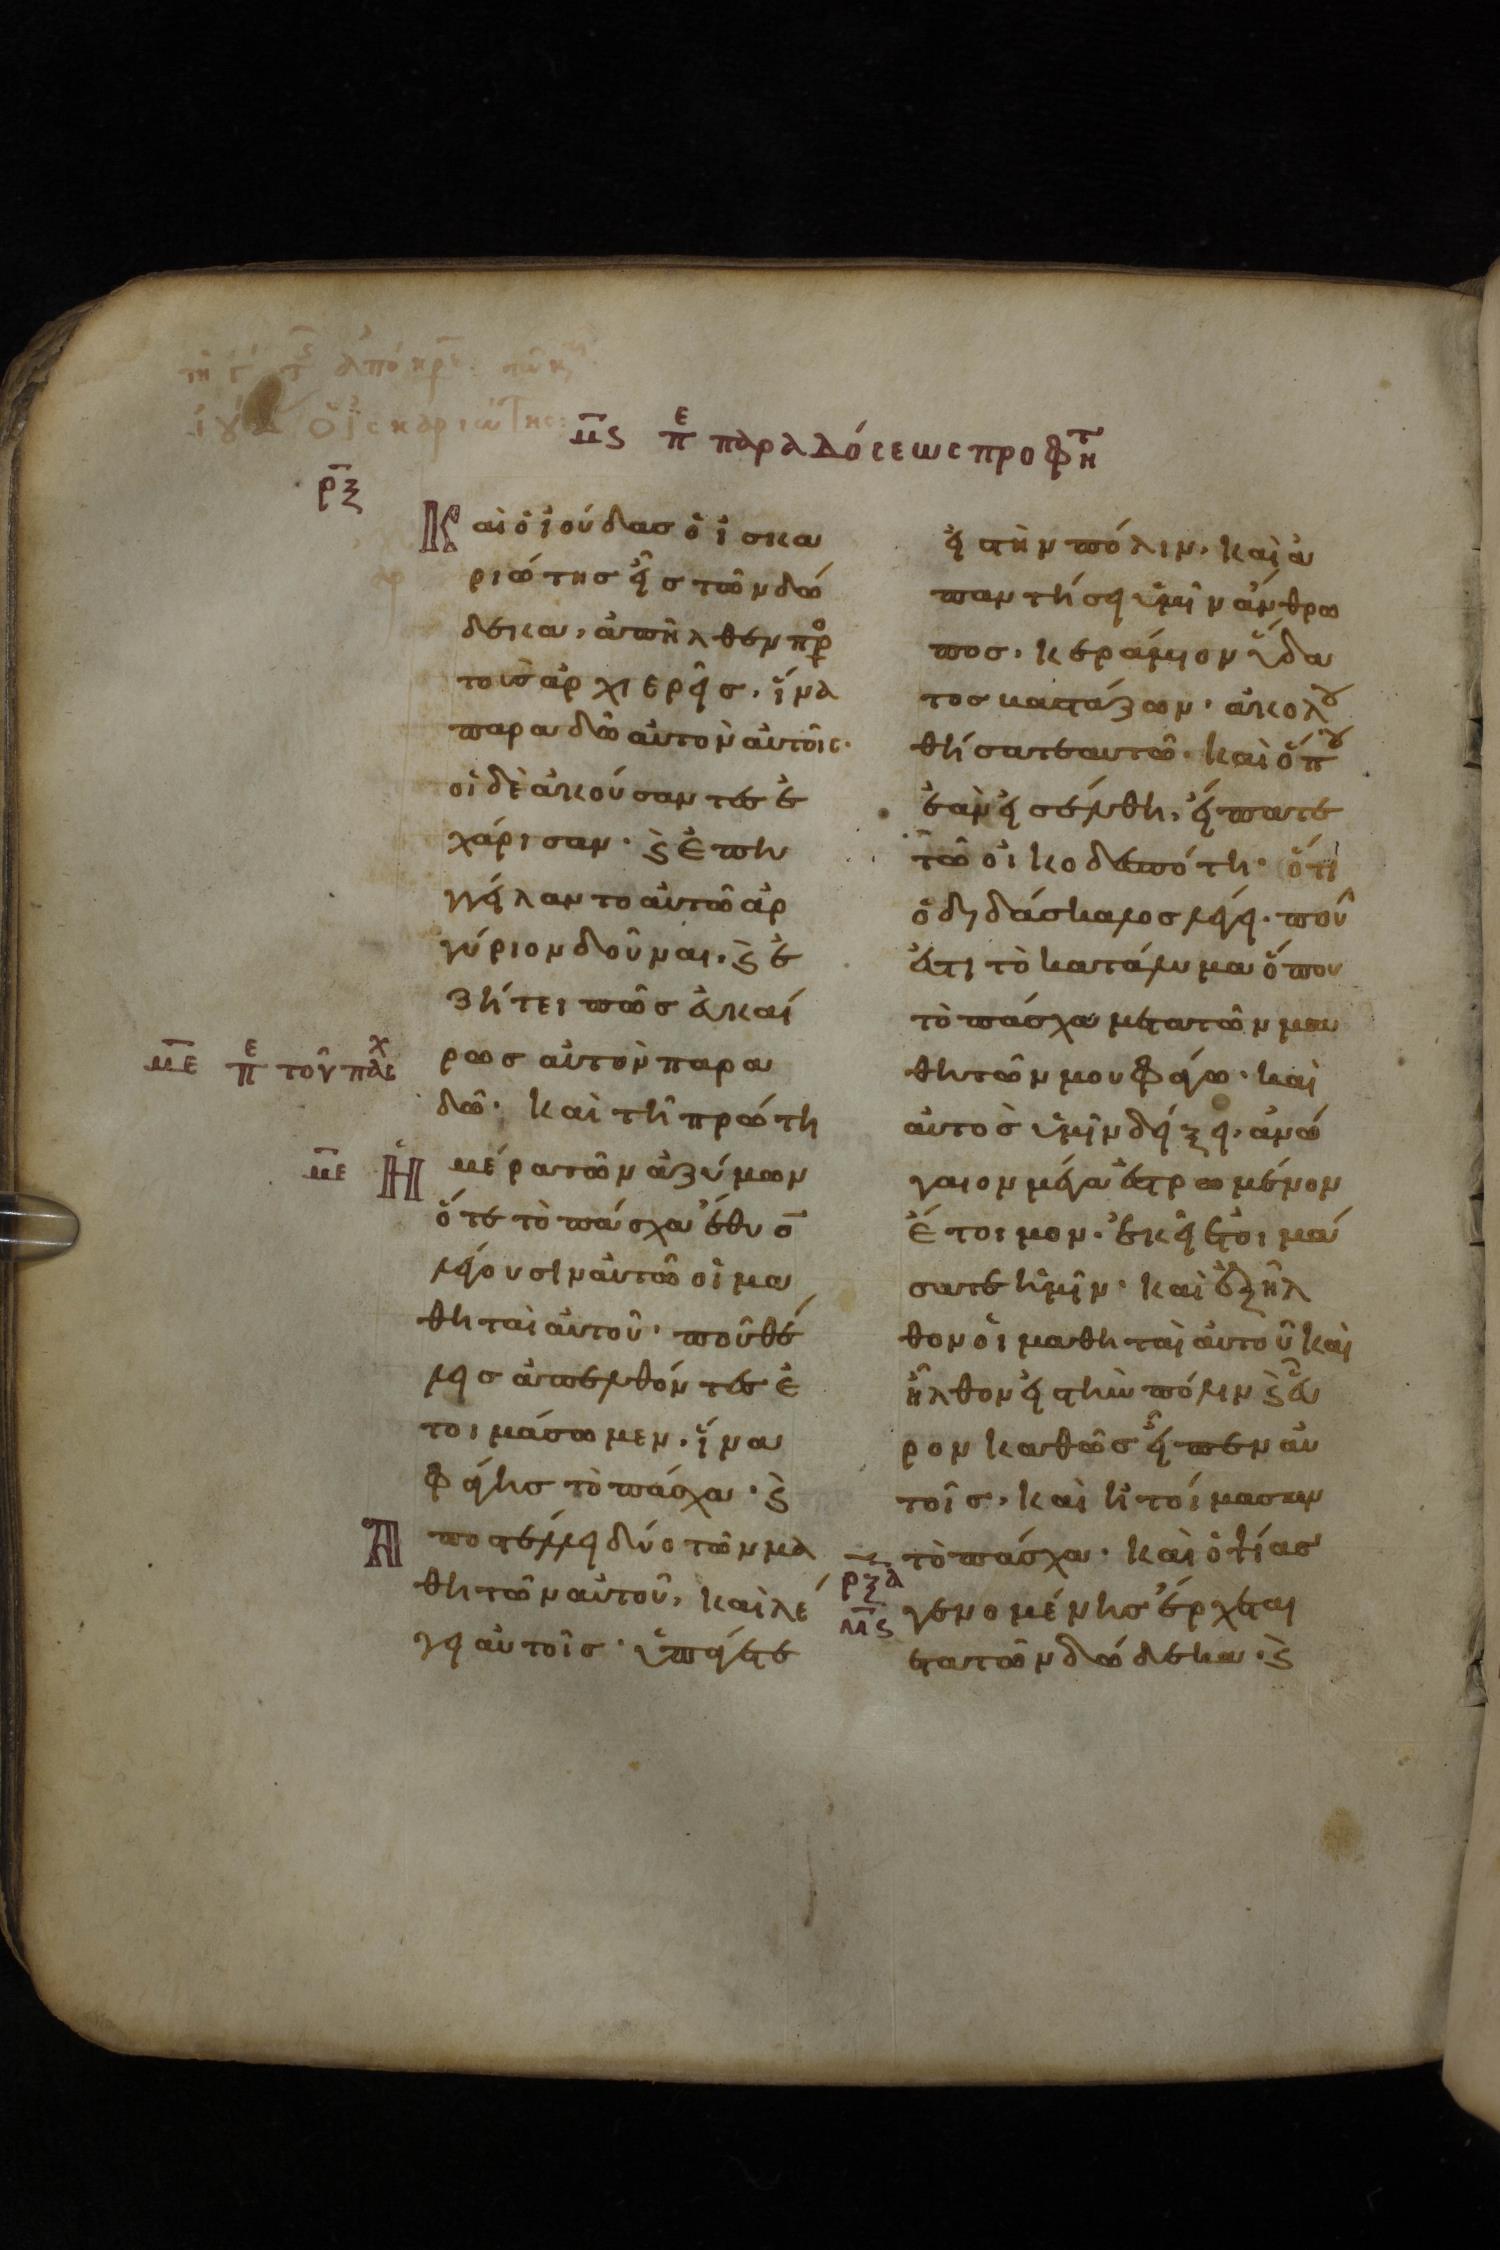 μς πε παραδόσεως προφητ
ρξ
Καὶ ὁ ἰούδας ὁ ἰσκα
ριώτης εἷς τῶν δώ
δεκα, ἀπῆλθεν πρ
τοὺς ἀρχιερεῖς, ἵνα
παραδῶ αὐτὸν αὐτοῖς·
οἱ δὲ ἀκούσαντες ἐ
χάρισαν· ϛ ἐπη
γγείλαντο αὐτῶ ἀρ
γύριον δοῦναι, ϛ ἐ
ζήτει πῶς εὐκαί
ρως αὐτὸν παρα
δῶ· καὶ τῆ πρώτη
με πε τοῦ πάσχ
με Ἡμέρα τῶν ἀζύμων
ὅτε τὸ πάσχα ἔθυο
λέγουσιν αὐτῶ οἱ μα
θηταὶ αὐτοῦ· ποῦ θέ
λεις ἀπελθόντες ἑ
τοιμάσωμεν, ἵνα
φάγης τὸ πάσχα· ϛ
Ἀποστέλλει δύο τῶν μα
θητῶν αὐτοῦ, καὶ λέ
γει αὐτοῖς· ὑπάγετε
εἰς τὴν πόλιν, καὶ ἀ
παντήσει ὑμῖν ἄνθρω
πος, κεράμιον ὕδα
τος βαστάζων· ἀκολου
θήσατε αὐτῶ· καὶ ὅπου
ἐὰν εἰσέλθη, εἴπατε
τῶ οἰκοδεσπότη· ὅτι
ὁ διδάσκαλος λέγει· ποῦ
ἐστι τὸ κατάλυμα ὅπου
τὸ πάσχα μετὰ τῶν μα
θητῶν μου φάγω· καὶ
αὐτὸς ὑμῖν δείξει, ἀνώ
γαιον μέγα ἐστρωμένον
ἕτοιμον· ἐκεῖ ἑτοιμά
σατε ἡμῖν· καὶ ἐξῆλ
θον οἱ μαθηταὶ αὐτοῦ καὶ
ἦλθον εἰς τὴν πόλιν ϛ εὗ
ρον καθὼς εἶπεν αὐ
τοῖς, καὶ ἡτοίμασαν
τὸ πάσχα· καὶ ὀψίας
ρξα
μς γενομένης ἔρχεται
μετὰ τῶν δώδεκα· ϛ